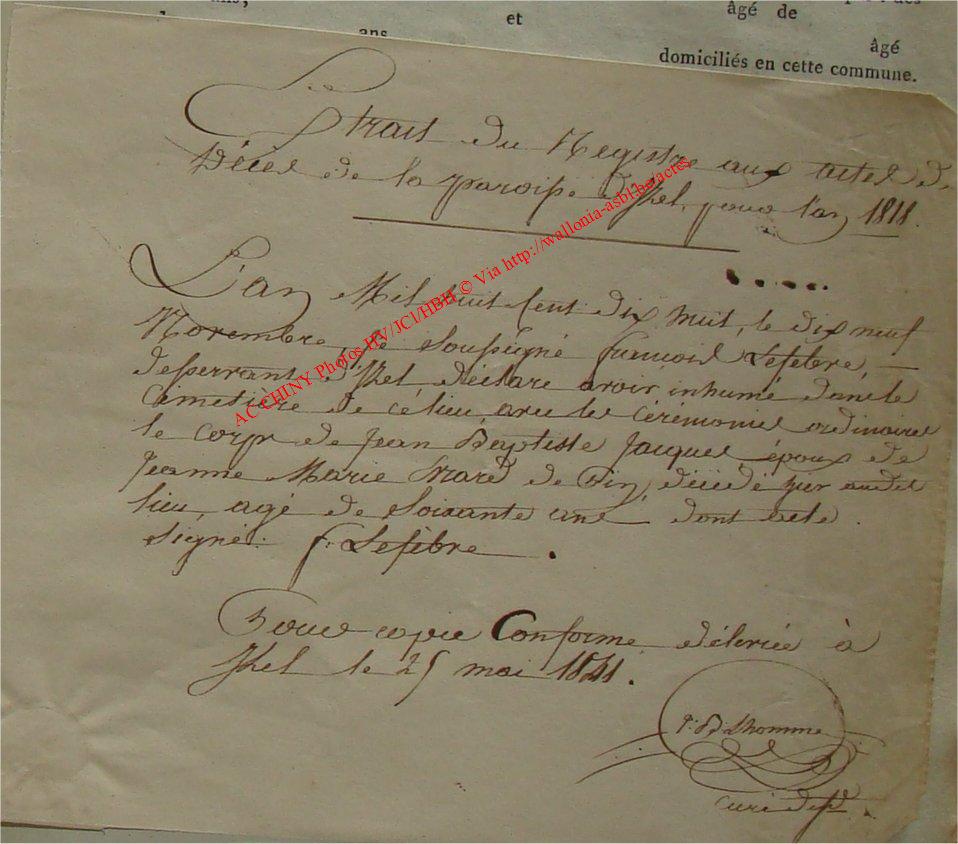 ans,
et
âgé de
ans
âgé
domiciliés en cette commune.
Extrait du Registre aux actes de
Décès de la paroisse d'Izel, pour l'an 1818.
L'an Mil huit cent dix huit, le dix neuf
Novembre, je soussigné françois Lefebre,
desservant d'Izel déclare avoir inhumé dans le
Cemetière de ce lieu, avec les cérémonies ordinaires
le corps de jean Baptiste jacques époux de
jeanne Marie de Pin, décédé hier audit
lieu, agé de soixante ans dont acte.
signé: f. Lefèbre.
Pour copie Conforme, délivrée à
Izel le 25 mai 1841.
Lhomme
curé dess.
AC CHINY Photos HV/JCl/HBH © Via http://wallonia-asbl.be/actes